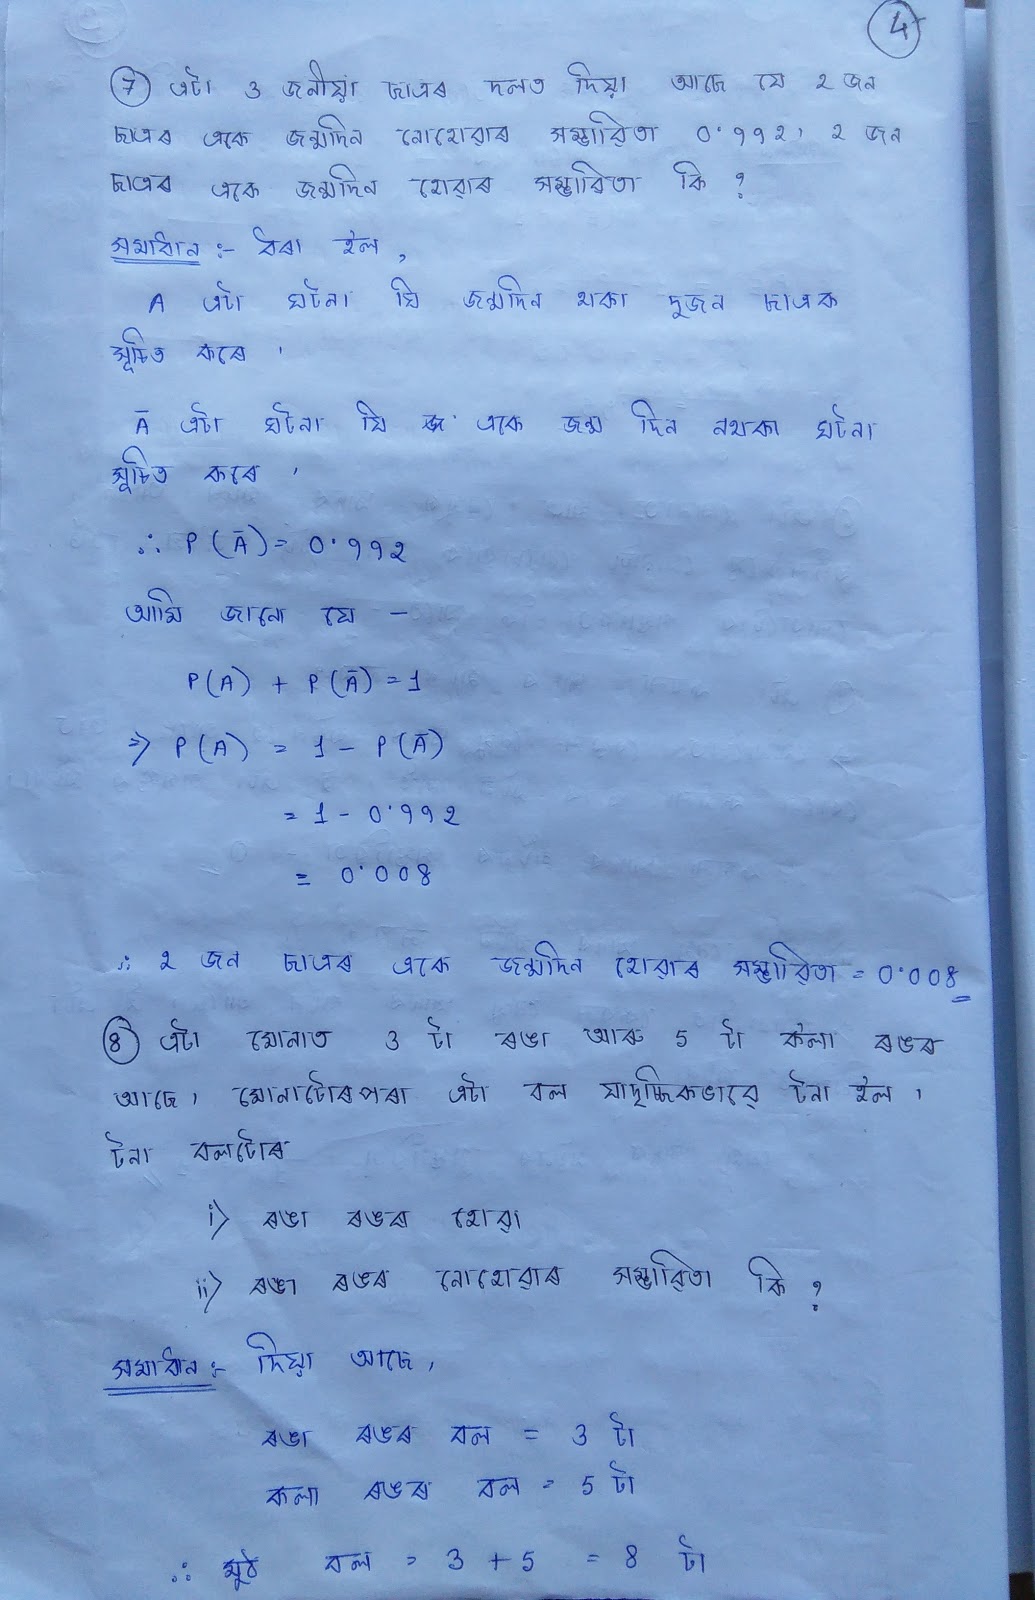 4
7 এটা 3 জনীয়া ছাত্ৰৰ দলত দিয়া আছে যে 2 জন
ছাত্ৰৰ একে জন্মদিন নোহোৱাৰ সম্ভাৱিতা 0.992। 2 জন
ছাত্ৰৰ একে জন্মদিন হোৱাৰ সম্ভাৱিতা কি ?
সমাধান :- ধৰা হ'ল,
A এটা ঘটনা যি জন্মদিন থকা দুজন ছাত্ৰক
সূচিত কৰে ।
Ā এটা ঘটনা যি একে জন্ম দিন নথকা ঘটনা
সূচিত কৰে ।
∴ P(Ā) = 0.992
আমি জানো যে —
P(A) + P(Ā) = 1
⇒ P(A) = 1 - P(Ā)
= 1 - 0.992
= 0.008
∴ 2 জন ছাত্ৰৰ একে জন্মদিন হোৱাৰ সম্ভাৱিতা = 0.008
8 এটা মোনাত 3 টা ৰঙা আৰু 5 টা ক'লা ৰঙৰ
আছে। মোনাটোৰপৰা এটা বল যাদৃচ্ছিকভাৱে টনা হ'ল ।
টনা বলটোৰ
i) ৰঙা ৰঙৰ হোৱা
ii) ৰঙা ৰঙৰ নোহোৱাৰ সম্ভাৱিতা কি ?
সমাধান :- দিয়া আছে,
ৰঙা ৰঙৰ বল = 3 টা
কলা ৰঙৰ বল = 5 টা
∴ মুঠ বল = 3 + 5 = 8 টা